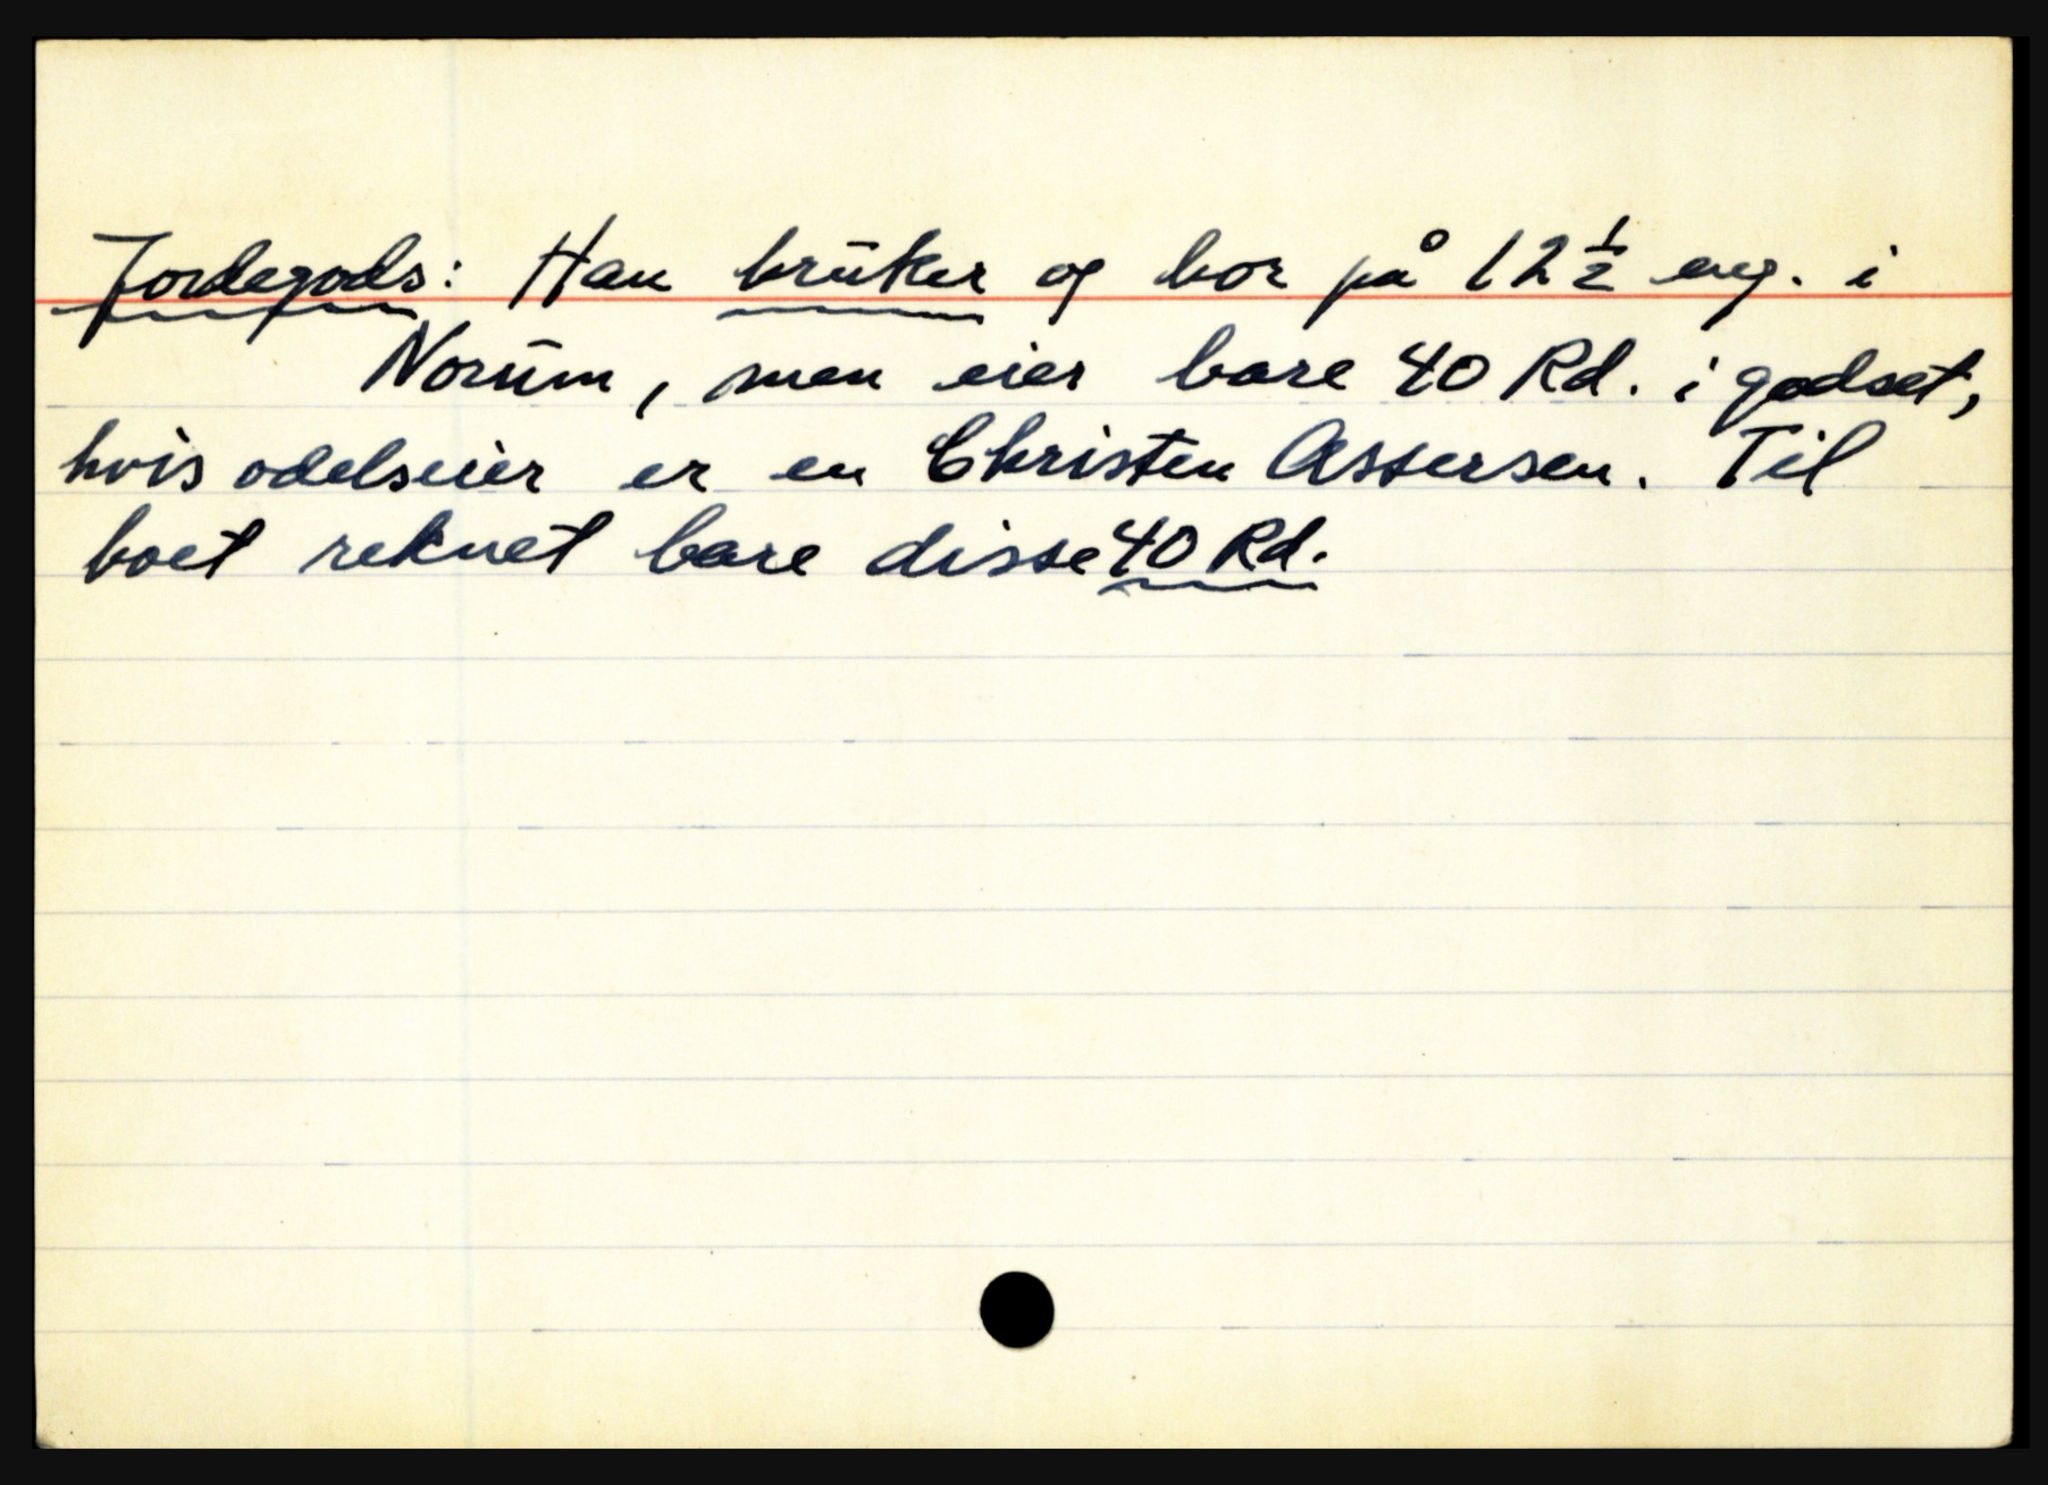 Jordegods: Han brūker og bor på 12 ½ eng. i
Norūm, men eier bare 40 Rd. i godset,
hvis odelseier er en Christen Assersen. Til
boet reknet bare disse 40 Rd.